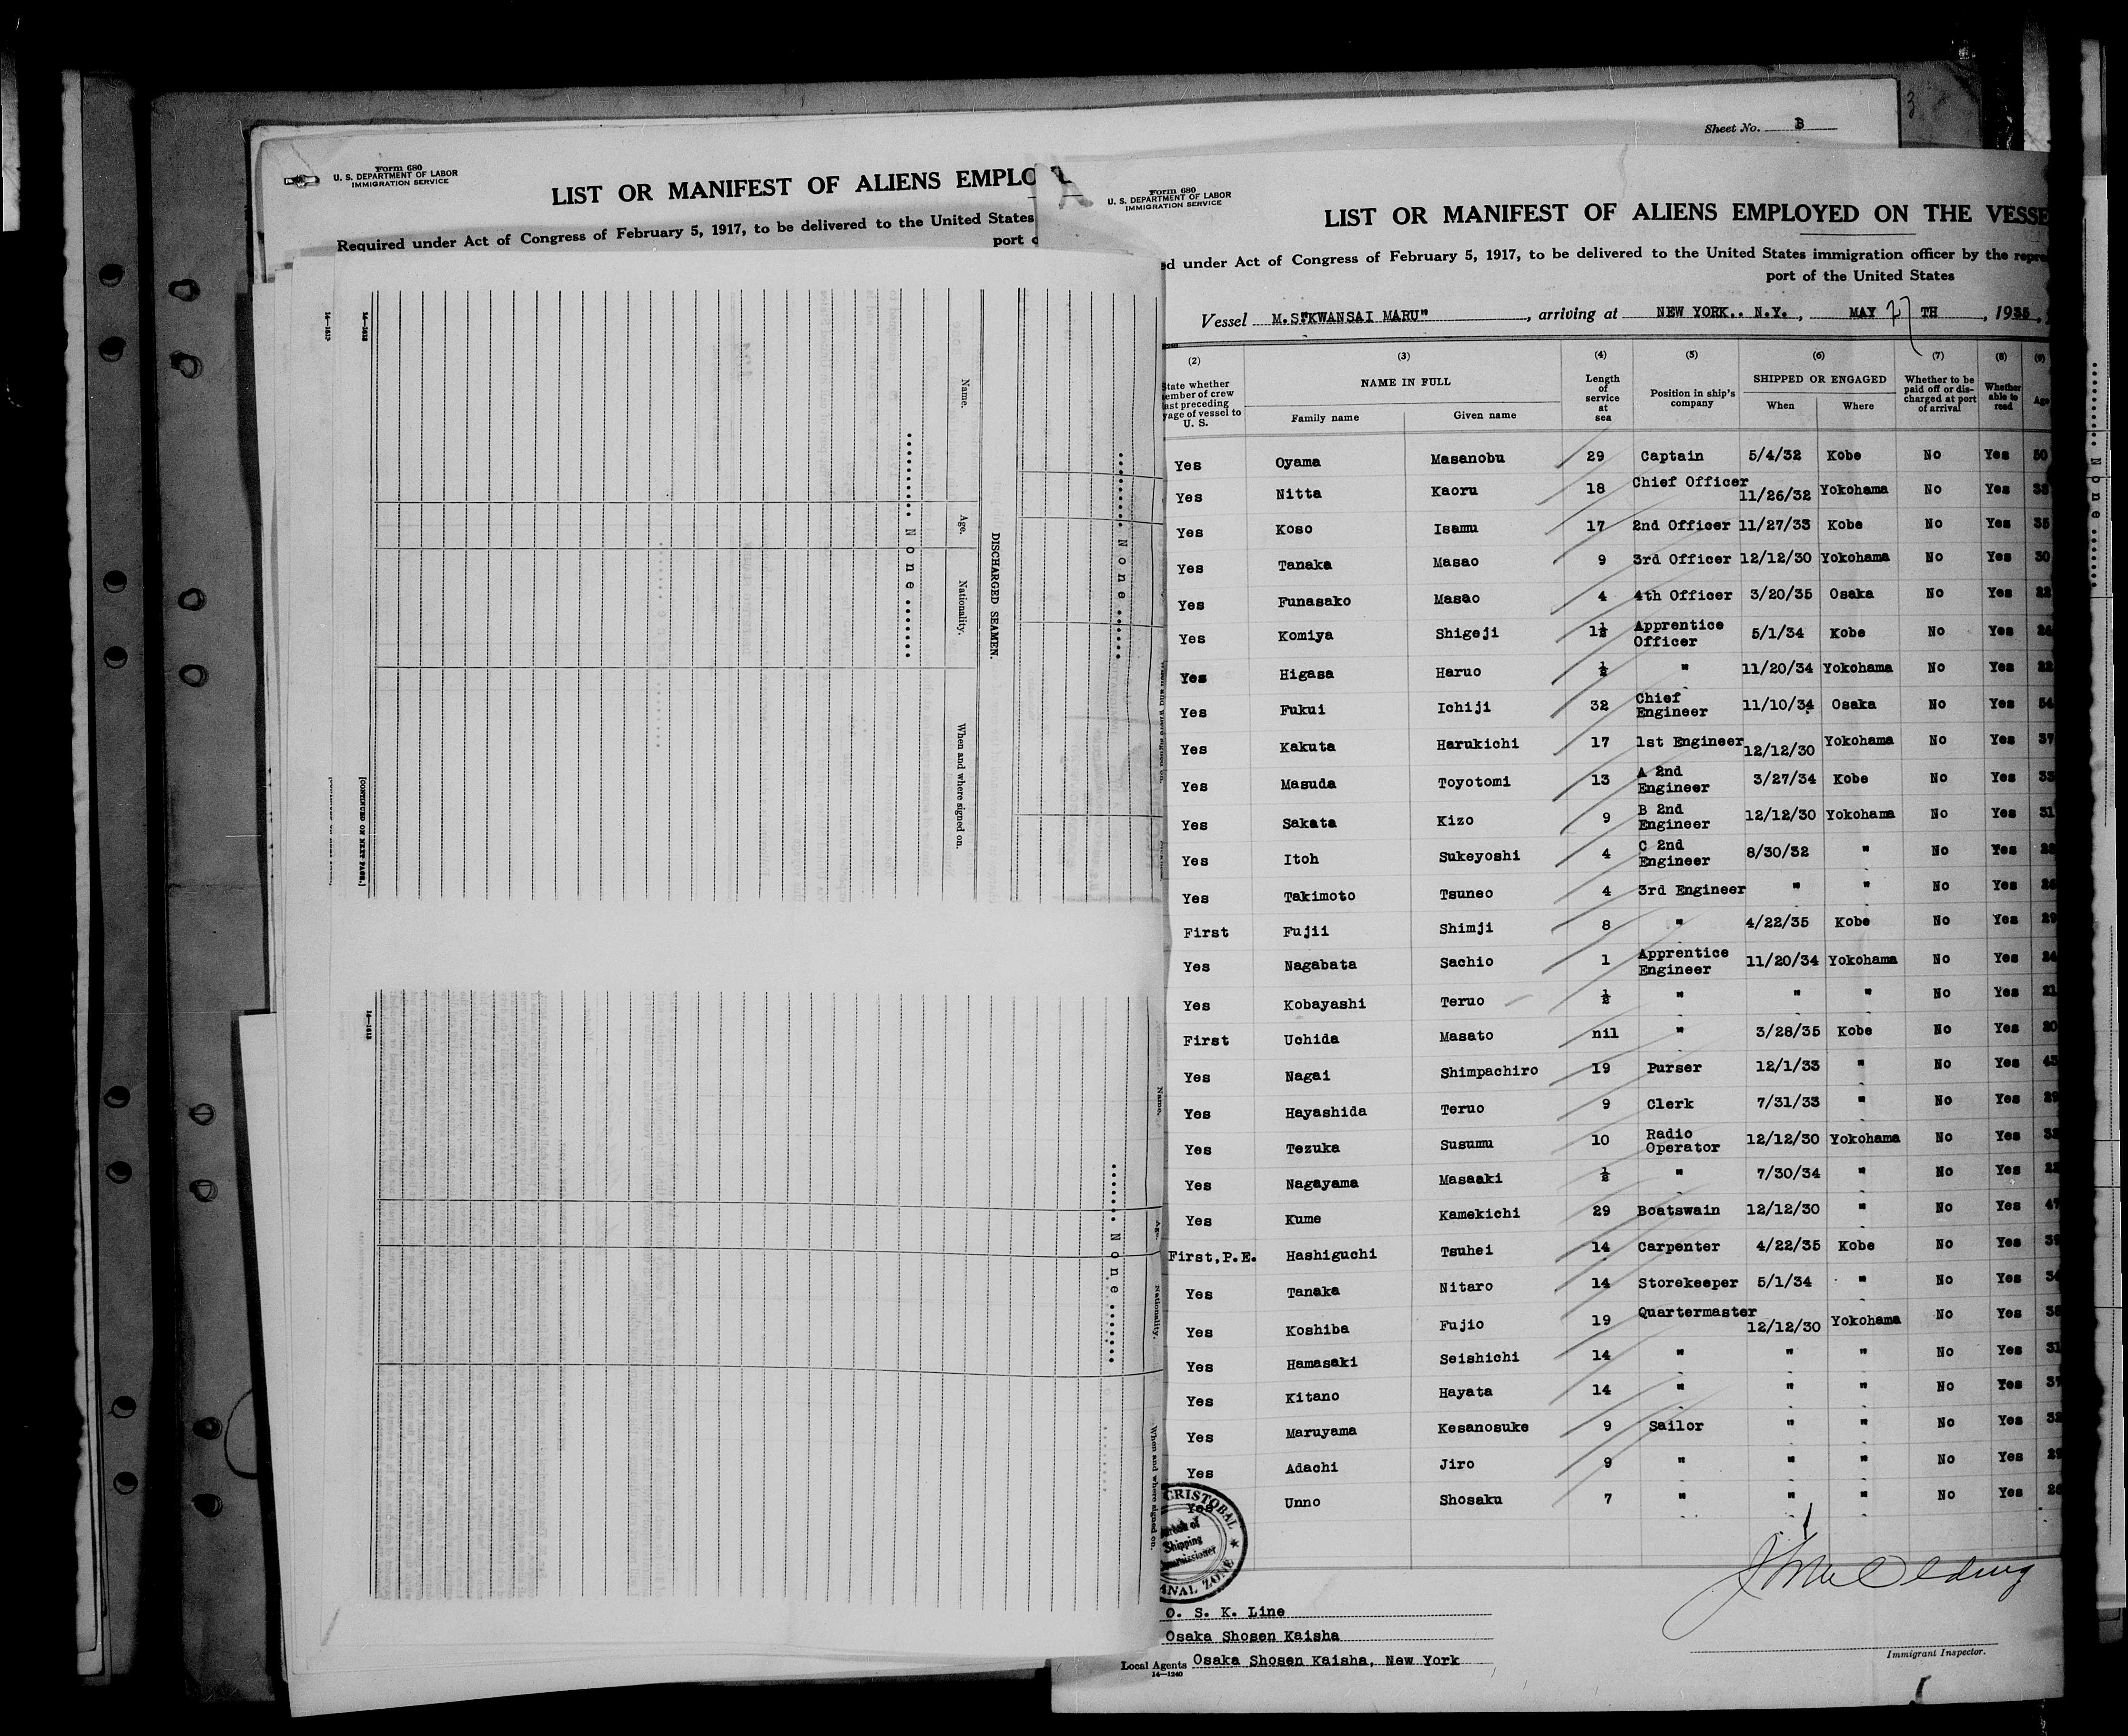 Sheet No. B
3
Form 680
U. S. DEPARTMENT OF LABOR
IMMIGRATION SERVICE
LIST OR MANIFEST OF ALIENS EMPLO
Required under Act of Congress of February 5, 1917, to be delivered to the United States
port o
14—1240
Name.
Age.
Nationality.
When and where signed on.
DISCHARGED SEAMEN.
None
None
[CONTINUED ON NEXT PAGE.]
Name.
Age.
Nationality.
When and where signed on.
None
Form 680
U. S. DEPARTMENT OF LABOR
IMMIGRATION SERVICE
LIST OR MANIFEST OF ALIENS EMPLOYED ON THE VESSE
ed under Act of Congress of February 5, 1917, to be delivered to the United States immigration officer by the repre
port of the United States
Vessel M.S."KWANSAI MARU", arriving at NEW YORK.. N.Y., MAY 27 TH, 1935,
(2) (3) (4) (5) (6) (7) (8) (9)
State whether member of crew last preceding voyage of vessel to U. S.
NAME IN FULL
Family name Given name
Length of service at sea
Position in ship's company
SHIPPED OR ENGAGED
When Where
Whether to be paid off or discharged at port of arrival
Whether able to read
Age
Yes Oyama Masanobu 29 Captain 5/4/32 Kobe No Yes 50
Yes Nitta Kaoru 18 Chief Officer 11/26/32 Yokohama No Yes 38
Yes Koso Isamu 17 2nd Officer 11/27/33 Kobe No Yes 35
Yes Tanaka Masao 9 3rd Officer 12/12/30 Yokohama No Yes 30
Yes Funasako Masao 4 4th Officer 3/20/35 Osaka No Yes 22
Yes Komiya Shigeji 1½ Apprentice Officer 5/1/34 Kobe No Yes 26
Yes Higasa Haruo ½ " 11/20/34 Yokohama No Yes 22
Yes Fukui Ichiji 32 Chief Engineer 11/10/34 Osaka No Yes 54
Yes Kakuta Harukichi 17 1st Engineer 12/12/30 Yokohama No Yes 37
Yes Masuda Toyotomi 13 A 2nd Engineer 3/27/34 Kobe No Yes 33
Yes Sakata Kizo 9 B 2nd Engineer 12/12/30 Yokohama No Yes 31
Yes Itoh Sukeyoshi 4 C 2nd Engineer 8/30/32 " No Yes 28
Yes Takimoto Tsuneo 4 3rd Engineer " " No Yes
First Fujii Shimji 8 " 4/22/35 Kobe No Yes 29
Yes Nagabata Sachio 1 Apprentice Engineer 11/20/34 Yokohama No Yes 24
Yes Kobayashi Teruo ½ " " " No Yes 21
First Uchida Masato nil " 3/28/35 Kobe No Yes 20
Yes Nagai Shimpachiro 19 Purser 12/1/33 " No Yes
Yes Hayashida Teruo 9 Clerk 7/31/33 " No Yes 29
Yes Tezuka Susumu 10 Radio Operator 12/12/30 Yokohama No Yes
Yes Nagayama Masaaki ½ " 7/30/34 " No Yes
Yes Kume Kamekichi 29 Boatswain 12/12/30 " No Yes 47
First,P.E. Hashiguchi Tsuhei 14 Carpenter 4/22/35 Kobe No Yes
Yes Tanaka Nitaro 14 Storekeeper 5/1/34 " No Yes
Yes Koshiba Fujio 19 Quartermaster 12/12/30 Yokohama No Yes
Yes Hamasaki Seishichi 14 " " " No Yes 31
Yes Kitano Hayata 14 " " " No Yes 37
Yes Maruyama Kesanosuke 9 Sailor " " No Yes
Yes Adachi Jiro 9 " " " No Yes
Yes Unno Shosaku 7 " " " No Yes
CRISTOBAL
Shipping
CANAL ZONE
O. S. K. Line
Osaka Shosen Kaisha
Local Agents Osaka Shosen Kaisha, New York
14—1240
Immigrant Inspector.
None